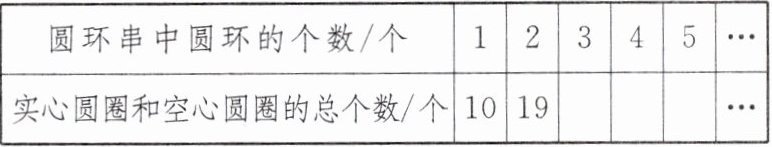 圆环串中圆环的个数/个 1 2 3 4 5 …
实心圆圈和空心圆圈的总个数/个 10 19 …